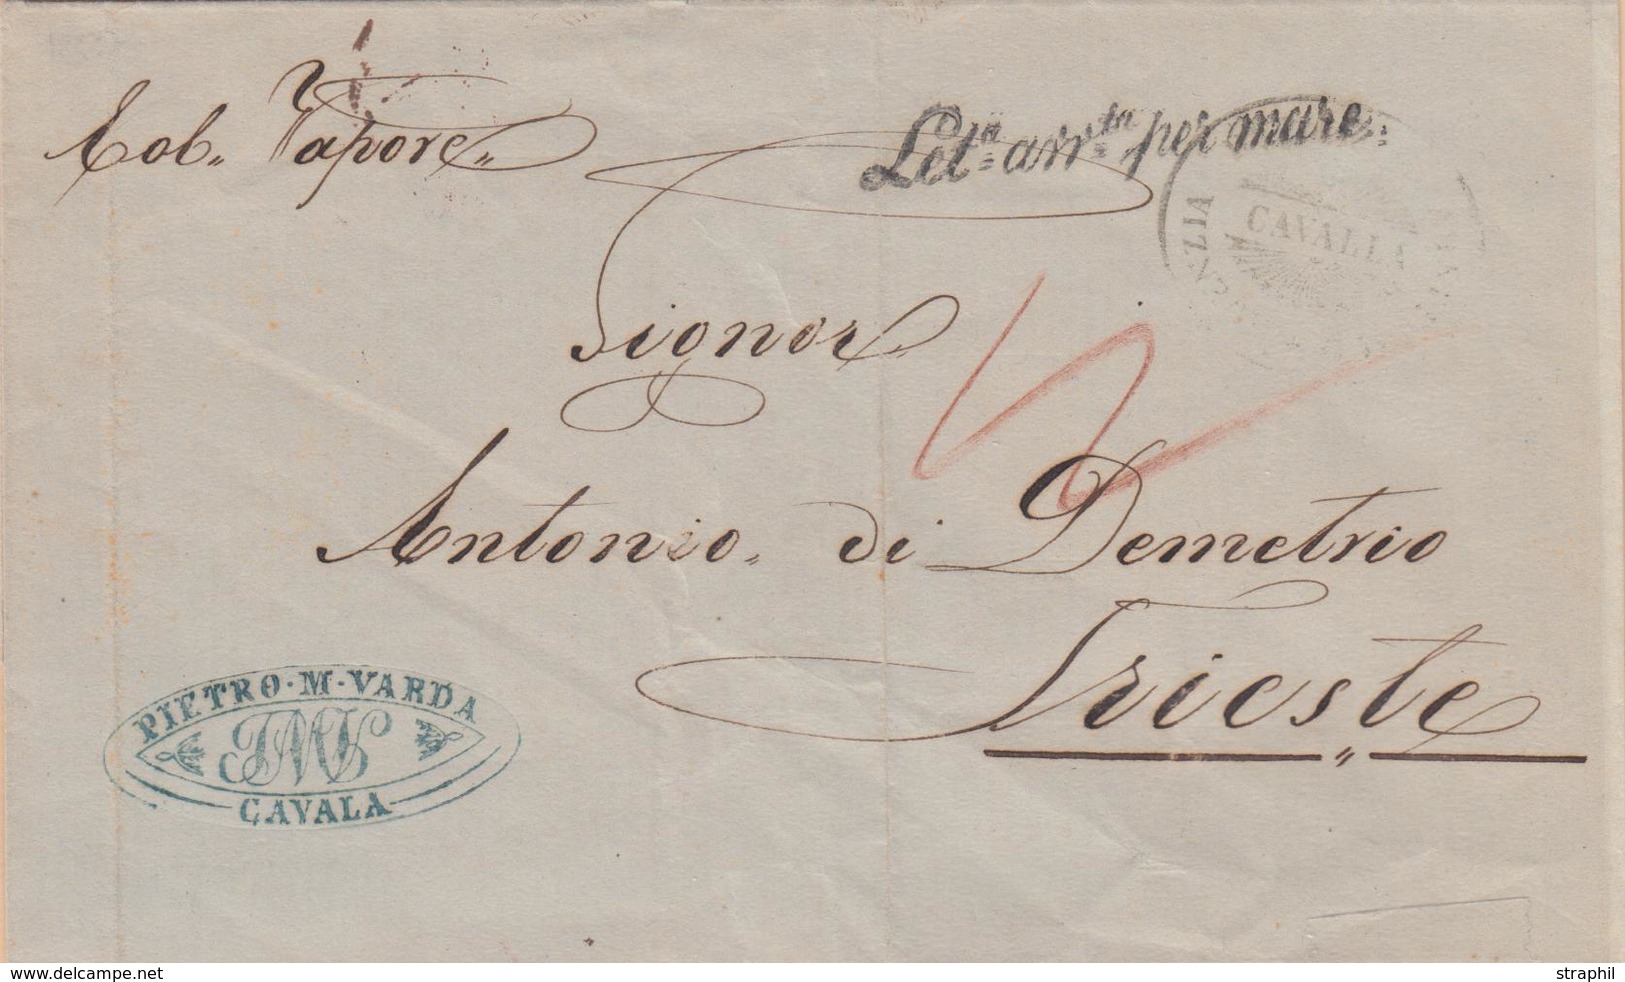 Col. Vapore
Let.a arr.ta per mare.
CAVALLA
Signor
Antonio di Demetrio
Trieste
PIETRO·M·VARDA
PMV
CAVALA
www.delcampe.net
straphil